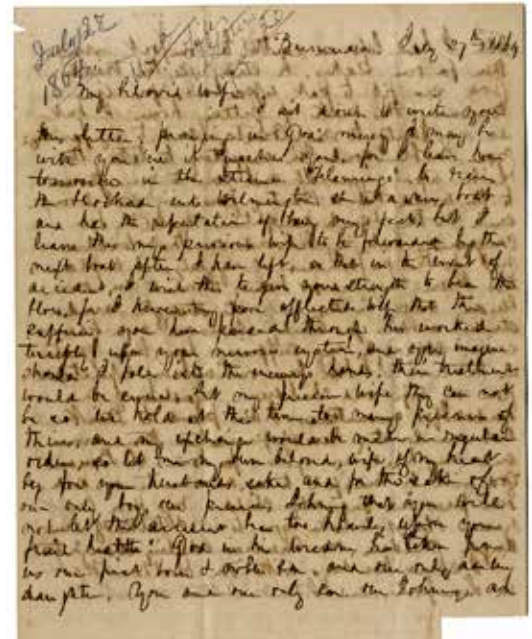 July 27
186
July 27th
My beloved wife
I sit down to write you
this letter, praying in God's mercy I may be
with you ere it reaches you, for I leave here
tomorrow in the steamer "Flamingo" to run
the blockade into Wilmington she is a new boat
and has the reputation of being very fast, but I
leave this my precious wife to be forwarded by the
next boat after I have left, so that in the event of
accident, it will to give you strength to bear the
blow, for I know my poor afflicted wife that the
suffering you have passed through has worked
terribly upon your nervous system, and you imagine
should I fall into the enemy's hands, their treatment
would be cruel, but my precious wife they can not
be so, we hold at this time too many prisoners of
theirs, and an exchange would be made in regular
order, so let me my own beloved, wife of my heart
beg for your husband's sake and for the sake of
our only boy, our precious Johnny that you will
not let this too heavily upon your
frail health. God in his wisdom has taken from
us our first born & and our only
daughter, you and our only son our Johnny, are